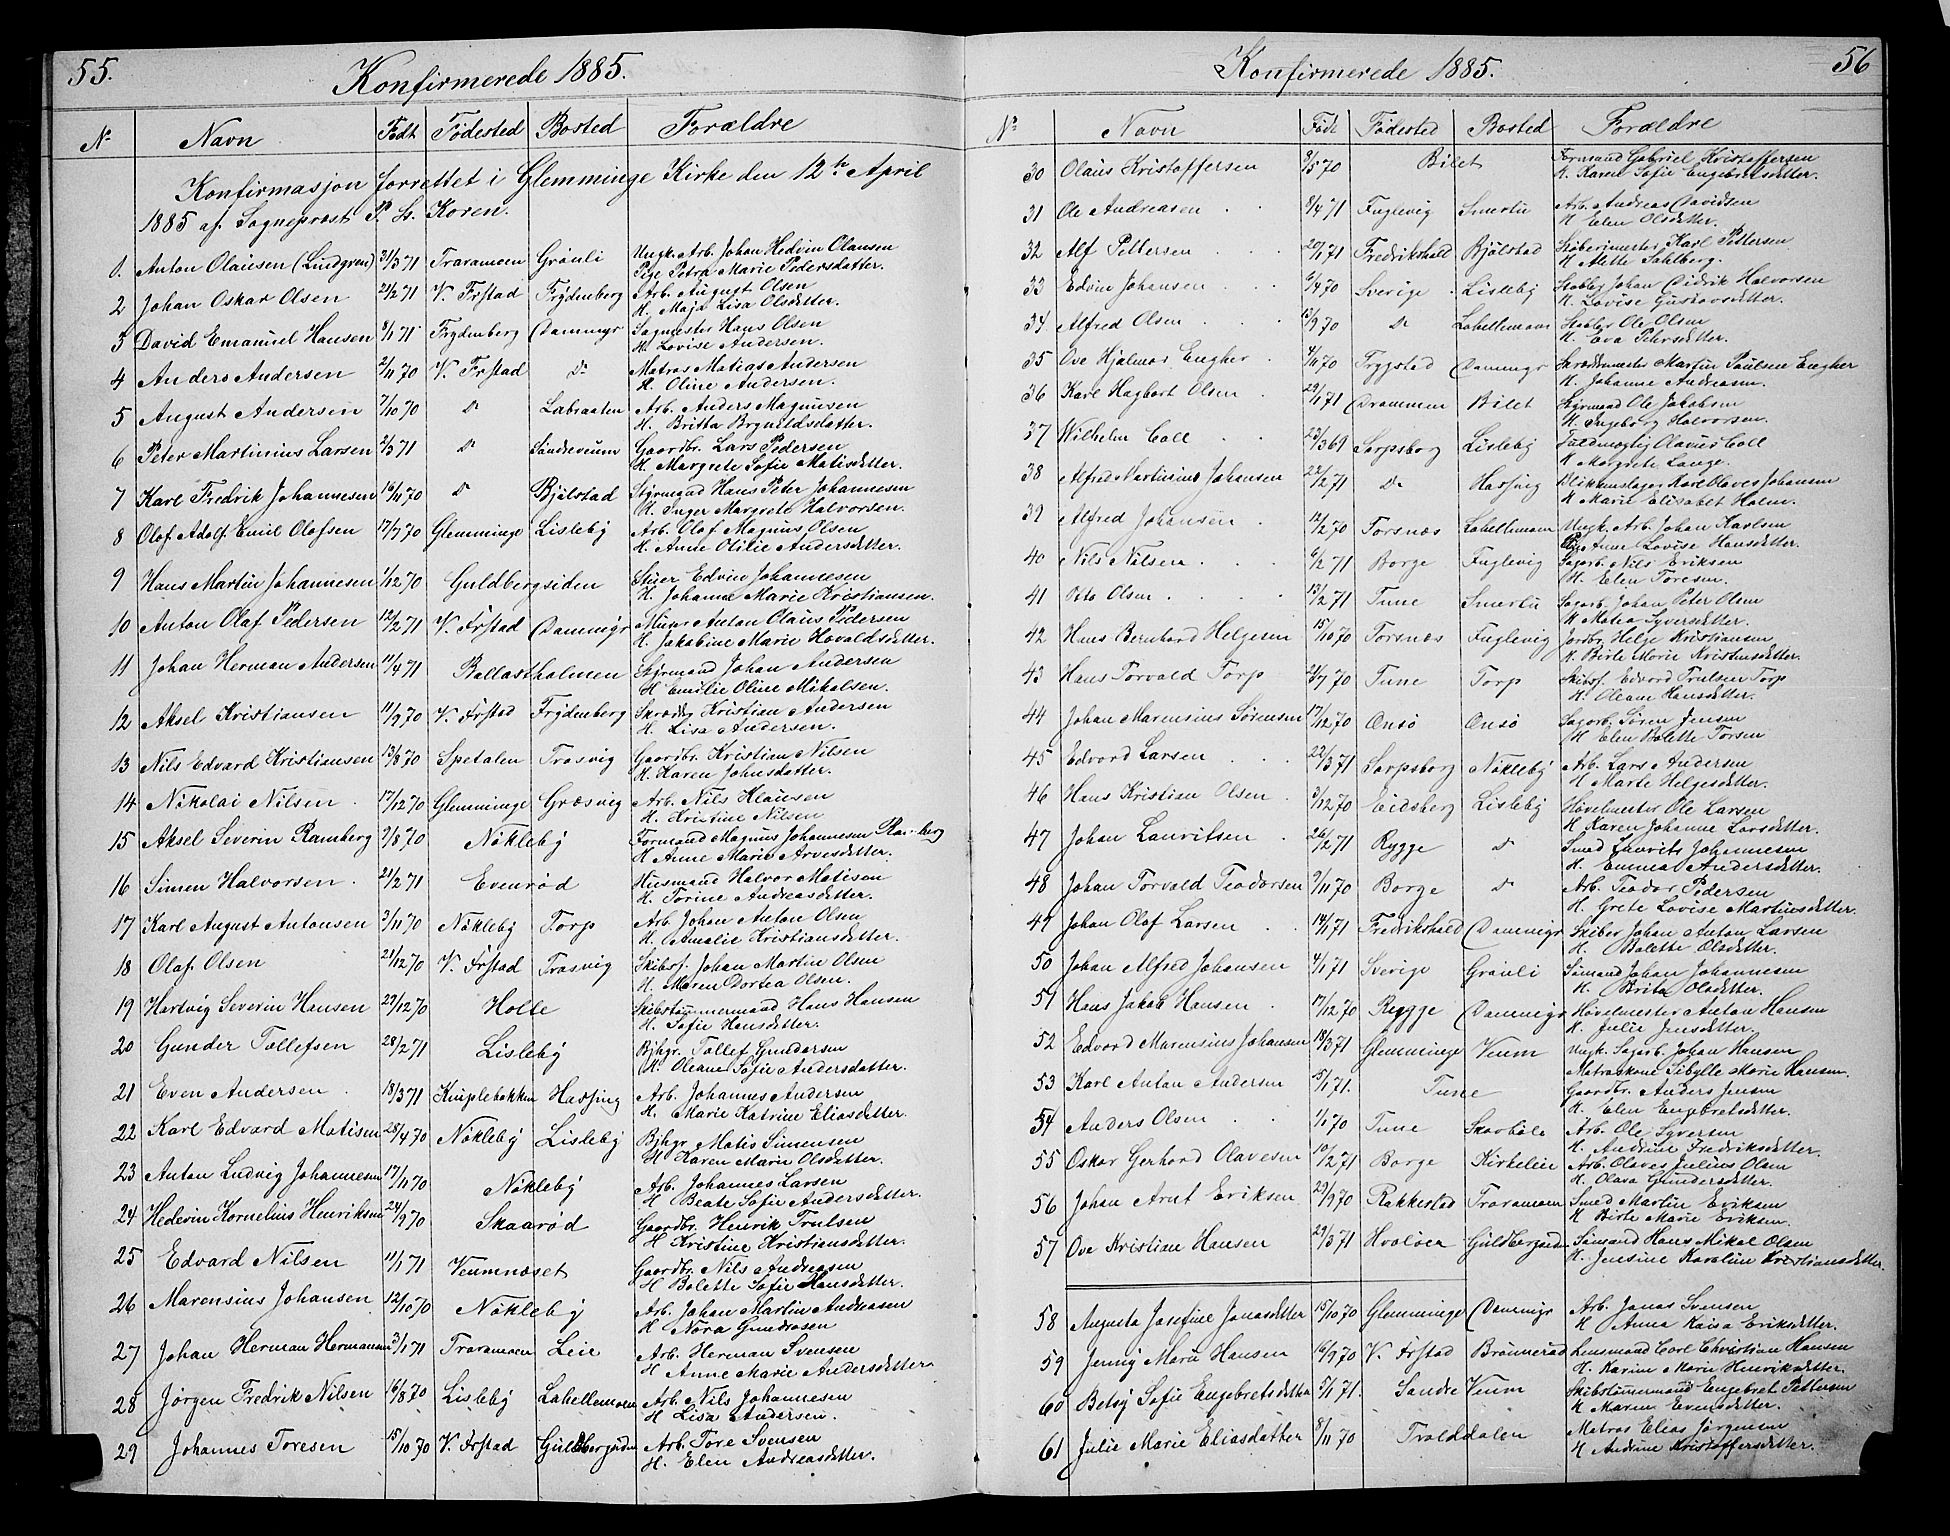 55.
Konfirmerede 1885.
Nr Navn Født Fødested Bosted Forældre
Konfirmasjon forrettet i Glemminge Kirke den 12th April
1885 af Sogneprest P. L. Koren.
1. Anton Olausen (Lindgren) 31/3 71 Traramoen Grönli Ungk. Arb. Johan Hedvin Olausen
Pige Petra Marie Pedersdatter.
2 Johan Oskar Olsen 21/2 71 V. Frstad Frydenberg Arb. August Olsen
H. Maja Lisa Olsdtter.
3 David Emanuel Hansen 8/1 71 Frydenberg Dammyr Sagmester Hans Olsen
H. Lovise Andersen.
4 Anders Andersen 2/11 70 V. Frstad Do Matros Matias Andersen
H. Oline Andersen.
5 August Andersen 7/10 70 Do Labraaten Arb. Anders Magnusen
H. Britta Brynildsdatter.
6 Peter Martinius Larsen 2/3 71 Do Sandreveum Gaardbr. Lars Pedersen
H. Margrete Sofie Matisdtter.
7 Karl Fredrik Johannesen 16/11 70 Do Bjölstad Styrmand Hans Peter Johannesen
H. Inger Margrete Halvorsen.
8 Olaf Adolf Emil Olafsen 17/7 70 Glemminge Lisleby Arb. Olaf Magnus Olsen
H. Anne Otilie Andersdtter.
9 Hans Martin Johannesen 1/12 70 Guldbergsiden Stuer Edvin Johannesen
H. Johanne Marie Kristiansen.
10 Anton Olaf Pedersen 12/2 71 V. Frstad Dammyr Murer Anton Olaus Pedersen
H. Jakobine Marie Hovaldsdtter.
11 Johan Herman Andersen 11/4 71 Ballastholmen Styrmand Johan Andersen
H Emilie Oline Mikalsen.
12 Aksel Kristiansen 11/9 70 V. Frstad Frydenberg Skrædder Kristian Andersen
H. Lisa Andersen.
13 Nils Edvard Kristiansen 13/8 70 Spetalen Trosvig Gaardbr. Kristian Nilsen
H. Karen Johnsdatter.
14 Nikolai Nilsen 17/12 70 Glemminge Græsvig Arb. Nils Klausen
H. Kristine Nilsen
15 Aksel Severin Ramberg 7/8 70 Nökleby Formand Magnus Johannesen Ramberg
H Anne Marie Arvesdtter.
16 Simen Halvorsen 21/2 71 Evenröd Husmand Halvor Matisen
H. Torine Andreasdtter.
17 Karl August Antonsen 3/11 70 Nökleby Torp Arb. Johan Anton Olsen
H. Amalie Kristiansdtter.
18 Olaf Olsen 21/12 70 V. Frstad Trosvig Skibsf. Johan Martin Olsen
H. Maren Dortea Olsen.
19 Hartvig Severin Hansen 29/12 70 Holte Skibstømmermand Hans Hansen
H. Sofie Hansdtter.
20 Gunder Tollefsen 28/2 71 Lisleby Bjhgr. Tollef Gundersen
H. Oleane Sofie Andersdatter.
21 Even Andersen 18/3 71 Kniplebakken Hassing Arb. Johannes Andersen
H. Marie Katrine Eliasdtter.
22 Karl Edvard Matisen 28/4 70 Nökleby Lisleby Bjhgr. Matis Simensen
H Karen Marie Olsdatter.
23 Anton Ludvig Johannesen 17/11 70 Nökleby Arb. Johannes Larsen
H Beate Sofie Andersdtter.
24 Hedevin Kornelius Henriksen 24/9 70 Skaaröd Gaardbr. Henrik Trulsen
H Kristine Kristiansdtter.
25 Edvard Nilsen 11/1 71 Veumnæset Gaardbr. Nils Andreasen
H Bolette Sofie Hansdtter.
26 Marensius Johansen 12/10 70 Nökleby Arb. Johan Martin Andreasen
H Nora Gundrosen
27 Johan Herman Hermansen 3/1 71 Traramoen Leie Arb. Herman Svensen
H Anne Marie Andersdtter
28 Jørgen Fredrik Nilsen 16/8 70 Lisleby Labellemoen Arb. Nils Johannesen
H Lisa Andersen.
29 Johannes Toresen 15/10 70 V. Frstad Guldbergsiden Arb. Tore Svensen
H. Elen Andreasdtter.
56
Konfirmerede 1885.
Nr Navn Født Fødested Bosted Forældre
30 Olaus Kristoffersen 9/5 70 Bilet Formand Gabriel Kristoffersen
H. Karen Sofie Engebretsdtter.
31 Ole Andreasen 8/4 71 Fuglevig Smertu Arb. Andreas Davidsen
H Elen Olsdtter.
32 Alf Pettersen 20/1 71 Fredrikshald Bjölstad Støberimester Karl Pettersen
H Alette Sahlberg.
33 Edvin Johansen 6/4 70 Sverige Lisleby Stabler Johan Didrik Halvorsen
H. Lovise Gustavsdtter.
34 Alfred Olsen 13/9 70 Do Labellemoen Stabler Ole Olsen
H. Eva Petersdtter.
35 Ove Hjalmar Engher 4/11 70 Trygstad Dammyr Skræddermester Martin Paulsen Engher
H. Johanne Andreasen.
36 Karl Hagbart Olsen 29/1 71 Drammen Bilet Styrmand Ole Jakobsen
H. Ingeborg Halvorsen.
37 Wilhelm Coll 23/3 69 Sarpsborg Lisleby Fuldmægtig Olavus Coll
H Margrete Lange.
38 Alfred Martinius Johansen 22/2 71 Do Hassing Blikkenslager Karl Olaves Johansen
H Marie Elisabet Holm.
39 Alfred Johansen 12/2 70 Torsnæs Labellemoen Ungk. Arb. Johan Karlsen
Pige Anne Lovise Hansdtter.
40 Nils Nilsen 6/2 71 Borge Fuglevig Sagarb. Nils Eriksen
H. Elen Toresen.
41 Otto Olsen 13/2 71 Tune Smertu Sagarb. Johan Peter Olsen
H Matea Syversdtter.
42 Hans Bernhard Helgesen 15/10 70 Torsnæs Fuglevig Jordbr. Helge Kristiansen
H. Birte Marie Kristensdtter.
43 Hans Torvald Torp 21/7 70 Tune Torp Skibsf. Edvard Trulsen Torp
H. Oleane Hansdtter.
44 Johan Marensius Sørensen 17/12 70 Onsö Onsö Sagarb. Søren Jensen
H Elen Bolette Torsen
45 Edvard Larsen 22/3 71 Sarpsborg Nökleby Arb. Lars Andersen
H Marte Helgesdtter.
46 Hans Kristian Olsen 3/12 70 Eidsberg Lisleby Hövelmester Ole Larsen
H Karen Johanne Larsdtter.
47 Johan Lauritsen 26/2 71 Rygge Do Smed Laurits Johannesen
H. Emma Andersdtter.
48 Johan Torvald Teodorsen 9/11 70 Borge Do Arb. Teodor Pedersen
H. Grete Lovise Martinsdtter.
49 Johan Olaf Larsen 14/1 71 Fredrikshald Dammyr Skiber Johan Anton Larsen
H. Bolette Olsdetter.
50 Johan Alfred Johansen 4/1 71 Sverige Grönli Sömand Johan Johannesen
H. Brita Olsdetter.
51 Hans Jakob Hansen 17/12 70 Rygge Dammyr Hövelmester Anton Hansen
H. Julie Jensdetter.
52 Edvard Marensius Johansen 18/3 71 Glemminge Veum Ungk. Sagarb. Johan Hansen
Matroskone Sibylle Marie Hansen.
53 Karl Anton Andersen 15/1 71. Tune Gaardbr. Anders Jensen
H. Elen Engebretsdtter.
54 Anders Olsen 1/1 70 Tune Skovböle Arb. Ole Syversen
H. Andrine Fredriksdtter.
55 Oskar Gerhard Olavesen 10/2 71 Borge Kirkeleie Arb. Olaves Julius Olsen
H. Olava Gundersdtter.
56 Johan Arnt Eriksen 29/9 70 Rakkestad Traramoen Smed Martin Eriksen
H Birte Marie Eriksen.
57 Ove Kristian Hansen 29/3 71 Hvaløer Guldbergsiden Sömand Hans Mikal Olsen
H. Jensine Karoline Kristiansdtter.
58 Augusta Josefine Jonasdtter 15/10 70 Glemminge Dammyr Arb. Jonas Svensen
H Anna Kaisa Eriksdtter.
59 Jenny Marie Hansen 16/9 70 V. Frstad Brönneröd Lensmand Carl Christian Hansen
H. Karine Marie Henriksdtter.
60 Betsy Sofie Engebretsdtter 5/1 71. Sandre Veum Skibstømermand Engebret Pettersen
H Maren Evensdtter.
61 Julie Marie Eliasdatter 8/11 70 Tralddalen Matros Elias Jørgensen
H Andrine Kristoffersdtter.